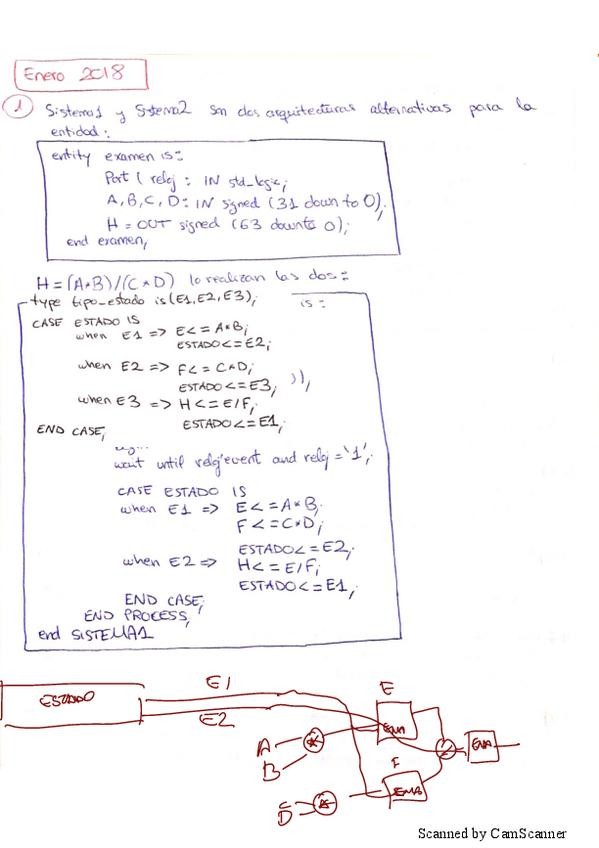 Enero 2018
1 Sistema1 y Sistema2 son dos arquitecturas alternativas para la
entidad:
entity examen is:
Port ( reloj : IN std_logic;
A, B, C, D : IN signed (31 down to 0).
H = OUT signed (63 downto 0);
end examen,
H = (A*B)/(C*D) lo realizan las dos:
type tipo_estado is (E1, E2, E3);
is:
CASE ESTADO IS
when E1 => E <= A*B;
ESTADO <= E2;
when E2 => F <= C*D;
ESTADO <= E3;
));
when E3 => H <= E/F;
ESTADO <= E1;
END CASE;
wait until reloj'event and reloj = '1';
CASE ESTADO IS
when E1 => E <= A*B;
F <= C*D;
ESTADO <= E2;
when E2 => H <= E/F;
ESTADO <= E1;
END CASE;
END PROCESS;
end SISTEMA1
ESTADO
E1
E2
E
A
B
*
ENA
/
ENA
F
C
D
*
ENA
Scanned by CamScanner